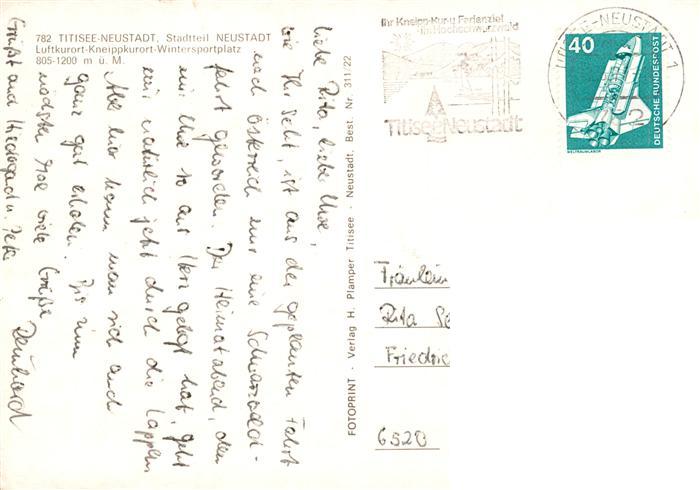 782 TITISEE-NEUSTADT, Stadtteil NEUSTADT
Luftkurort-Kneippkurort-Wintersportplatz
805-1200 m ü. M.
Liebe Rita, liebe Uwe,
wie Ihr seht, ist aus der geplanten Fahrt
nach Österreich nur eine Schwarzwald-
fahrt geworden. Der Heimatabend, den
mir Uwe so ans Herz gelegt hat, geht
mir natürlich jetzt durch die Lappen
Aber hier kann man sich auch
ganz gut erholen. Bis zum
nächsten Mal viele Grüße
Grüßt auch Hildegard u. Peter
FOTOPRINT - Verlag H. Plamper Titisee - Neustadt. Best. Nr. 311/22
Ihr Kneipp-Kur- u. Ferienziel
im Hochschwarzwald
Titisee Neustadt
TITISEE-NEUSTADT 1
40
DEUTSCHE BUNDESPOST
WELTRAUMLABOR
Fräulein
Rita
Friedrie
6520